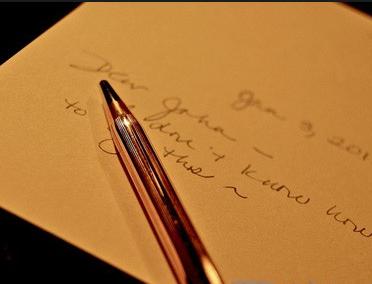 Jan 3, 201
Dear John –
don't know how
to this ~